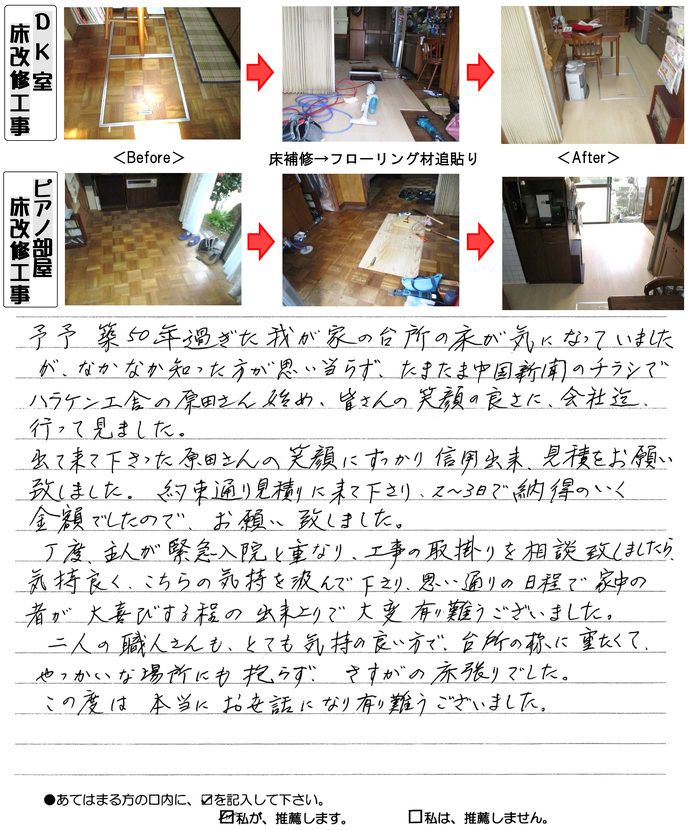 DK室
床改修工事
<Before>
床補修→フローリング材追貼り
<After>
ピアノ部屋
床改修工事
予予 築50年過ぎた我が家の台所の床が気になっていました
が、なかなか知った方が思い当らず、たまたま中国新聞のチラシで
ハラケン工舎の原田さん始め、皆さんの笑顔の良さに、会社迄、
行って見ました。
出て来て下さった原田さんの笑顔にすっかり信用出来、見積をお願い
致しました。 約束通り見積りに来て下さり、2〜3日で納得のいく
金額でしたので、お願い致しました。
丁度、主人が緊急入院と重なり、工事の取掛りを相談致しましたら、
気持良く、こちらの気持を汲んで下さり、思い通りの日程で家中の
者が大喜びする程の出来上りで大変有り難うございました。
二人の職人さんも、とても気持の良い方で、台所の様に重たくて、
やっかいな場所にも拘らず、さすがの床張りでした。
この度は本当にお世話になり有り難うございました。
●あてはまる方の口内に、☑を記入して下さい。
☑私が、推薦します。 □私は、推薦しません。